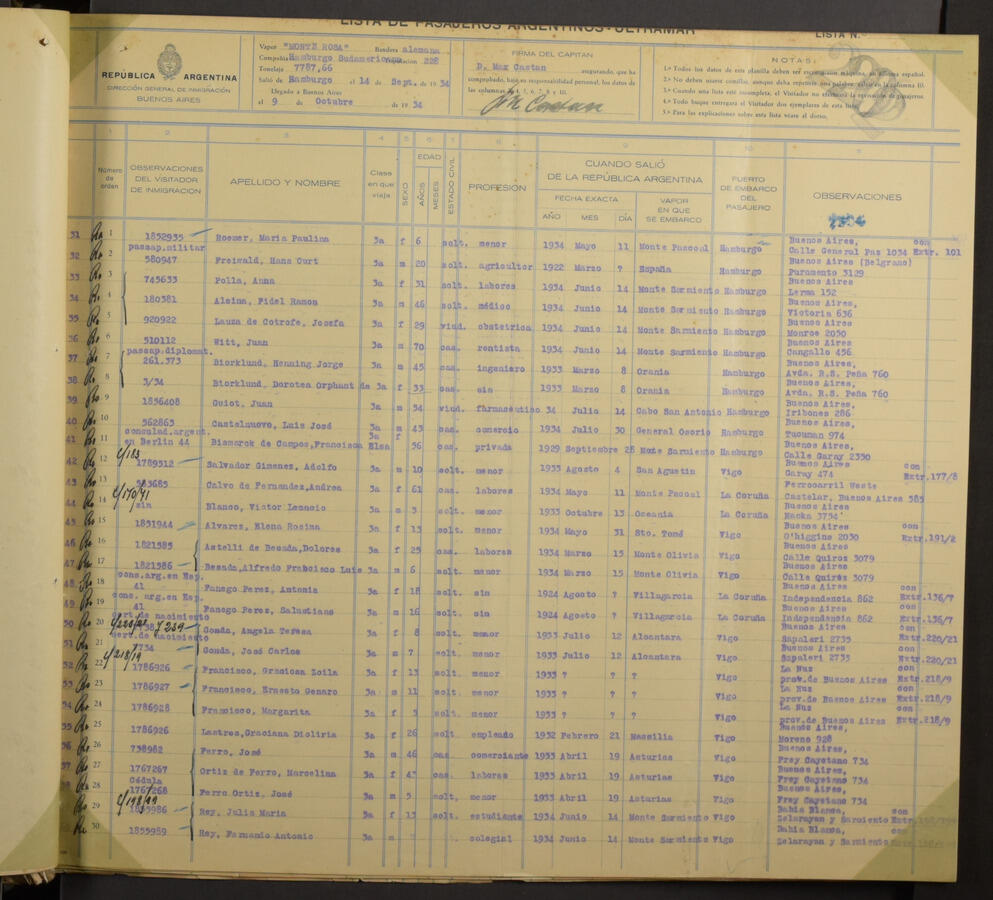 LISTA DE PASAJEROS ARGENTINOS - ULTRAMAR
LISTA N.
REPÚBLICA ARGENTINA
DIRECCIÓN GENERAL DE INMIGRACION
BUENOS AIRES
Vapor "MONTE ROSA" Bandera alemana
Compañía Hamburgo Sudamericana 228
Tonelaje 7787,66
Salió de Hamburgo el 14 Sept. de 1934
Llegado a Buenos Aires
el 9 Octubre de 1934
FIRMA DEL CAPITAN
D. Max Castan asegurando, que ha
comprobado, bajo su responsabilidad personal, los datos de
las columnas 3, 4, 5, 6, 7, 8 y 10.
NOTAS:
1.ª Todos los datos de esta planilla deben ser escritos a máquina, en idioma español.
2.ª No deben usarse comillas, aunque deba repetirse una palabra, salvo en la columna 10.
3.ª Cuando una lista esté incompleta, el Visitador no efectuará la operación de pasajeros.
4.ª Todo buque entregará el Visitador dos ejemplares de esta lista.
5.ª Para las explicaciones sobre esta lista véase al dorso.
Número de orden
OBSERVACIONES DEL VISITADOR DE INMIGRACION
APELLIDO Y NOMBRE
Clase en que viaja
SEXO
EDAD
AÑOS
MESES
ESTADO CIVIL
PROFESION
CUANDO SALIÓ DE LA REPÚBLICA ARGENTINA
FECHA EXACTA
AÑO MES DÍA
VAPOR EN QUE SE EMBARCO
PUERTO DE EMBARCO DEL PASAJERO
OBSERVACIONES
31 1 1852935 Roemer, Maria Paulina 3a f 6 solt. menor 1934 Mayo 11 Monte Pascoal Hamburgo Buenos Aires, con
Calle General Paz 1034 Extr. 101
32 2 passap.militar 580947 Freiwald, Hans Curt 3a m 20 solt. agricultor 1922 Marzo ? España Hamburgo Buenos Aires (Belgrano)
Puramento 3129
33 3 745633 Polla, Anna 3a f 31 solt. labores 1934 Junio 14 Monte Sarmiento Hamburgo Buenos Aires,
Lerma 152
34 4 180381 Aleina, Fidel Ramon 3a m 46 solt. médico 1934 Junio 14 Monte Sarmiento Hamburgo Buenos Aires,
Victoria 636
35 5 920922 Lauza de Cotrofe, Josefa 3a f 29 viud. obstetrica 1934 Junio 14 Monte Sarmiento Hamburgo Buenos Aires
Monroe 2030
36 6 510112 Witt, Juan 3a m 70 cas. rentista 1934 Junio 14 Monte Sarmiento Hamburgo Buenos Aires
Cangallo 456
37 7 passap.diplomat. 261.373 Biorklund, Henning Jorge 3a m 45 cas. ingeniero 1933 Marzo 8 Orania Hamburgo Buenos Aires,
Avda. R.S. Peña 760
38 8 3/34 Biorklund, Dorotea Orphant de 3a f 33 cas. sin 1933 Marzo 8 Orania Hamburgo Buenos Aires,
Avda. R.S. Peña 760
39 9 1836408 Guiot, Juan 3a m 54 viud. farmaséutico 34 Julio 14 Cabo San Antonio Hamburgo Buenos Aires,
Iribones 286
40 10 562863 Castelnuovo, Luis José 3a m 43 cas. comercio 1934 Julio 30 General Osorio Hamburgo Buenos Aires,
Tucuman 974
41 11 consulad.argent. en Berlin 44 Bismarck de Campos, Francisca Elsa 3a f 56 cas. privada 1929 Septiembre 28 Monte Sarmiento Hamburgo Buenos Aires,
Calle Garay 2350
42 12 1/183 1789512 Salvador Gimenez, Adolfo 3a m 10 solt. menor 1933 Agosto 4 San Agustin Vigo Buenos Aires con
Garay 474 Extr.177/8
43 13 Calvo de Fernandez, Andrea 3a f 61 cas. labores 1934 Mayo 11 Monte Pascoal La Coruña Ferrocarril Oeste
Castelar, Buenos Aires 385
44 14 sin Blanco, Victor Leoncio 3a m 3 sol. menor 1933 Octubre 13 Oceania La Coruña Buenos Aires
Hacka 3754
45 15 1831944 Alvarez, Elena Rosina 3a f 13 solt. menor 1934 Mayo 31 Sto. Tomé Vigo Buenos Aires con
O'higgins 2030 Extr.191/2
46 16 1821585 Astelli de Besada, Dolores 3a f 25 cas. labores 1934 Marzo 15 Monte Olivia Vigo Buenos Aires
Calle Quiros 3079
47 17 1821586 Besada, Alfredo Frabcisco Luis 3a m 6 sol. menor 1934 Marzo 15 Monte Olivia Vigo Buenos Aires
Calle Quirós 3079
48 18 cons.arg.en Esp. 41 Panego Perez, Antonia 3a f 18 sol. sin 1924 Agosto ? Villagarcia La Coruña Buenos Aires con
Independencia 862 Extr.136/7
49 19 cons. arg.en Esp. 41 Panego Perez, Salustiano 3a m 16 sol. sin 1924 Agosto ? Villagarcia La Coruña Buenos Aires con
Independencia 862 Extr.136/7
50 20 cert.de nacimiento Gonda, Angela Teresa 3a f 8 solt. menor 1933 Julio 12 Alcantara Vigo Buenos Aires, con
Sapaleri 2735 Extr.220/21
51 21 cert.de nacimiento Gonda, José Carlos 3a m 7 solt. menor 1933 Julio 12 Alcantara Vigo Buenos Aires con
Sapaleri 2735 Extr.220/21
52 22 1/218/19 1786926 Francisco, Graciosa Zoila 3a f 13 solt. menor 1933 ? ? ? Vigo La Nuz con
prov.de Buenos Aires Extr.218/9
53 23 1786927 Francisco, Ernesto Genaro 3a m 11 solt. menor 1933 ? ? ? Vigo La Nuz con
prov.de Buenos Aires Extr.218/9
54 24 1786928 Francisco, Margarita 3a f 5 solt. menor 1933 ? ? ? Vigo La Nuz con
prov.de Buenos Aires Extr.218/9
55 25 1786926 Lastres, Graciana Dioliria 3a f 26 solt. empleado 1932 Febrero 21 Massilia Vigo Buenos Aires,
Moreno 928
56 26 738982 Ferro, José 3a m 46 cas. comerciante 1933 Abril 19 Asturias Vigo Buenos Aires,
Frey Cayetano 734
57 27 1767267 Ortiz de Ferro, Marcelina 3a f 43 cas. labores 1933 Abril 19 Asturias Vigo Buenos Aires,
Frey Cayetano 734
28 Cédula 1767268 Ferro Ortiz, José 3a m 5 solt. menor 1933 Abril 19 Asturias Vigo Buenos Aires,
Frey Cayetano 734
29 1/198/99 1855986 Rey, Julia Maria 3a f 13 solt. estudiante 1934 Junio 14 Monte Sarmiento Vigo Bahia Blanca, con
Zelarayan y Sarmiento
30 1855989 Rey, Fernando Antonio 3a m solt. colegial 1934 Junio 14 Monte Sarmiento Vigo Bahia Blanca, con
Zelarayan y Sarmiento